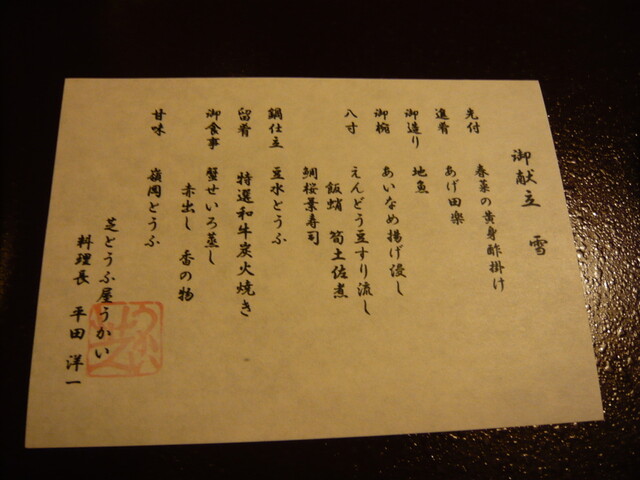 御献立 雪
先付 春菜の黄身酢掛け
進肴 あげ田楽
御造り 地魚
御椀 あいなめ揚げ浸し
八寸 えんどう豆すり流し
飯蛸 筍土佐煮
鯛桜葉寿司
鍋仕立 豆水とうふ
留肴 特選和牛炭火焼き
御食事 蟹せいろ蒸し
赤出し 香の物
甘味 嶺岡とうふ
芝とうふ屋うかい
料理長 平田 洋一